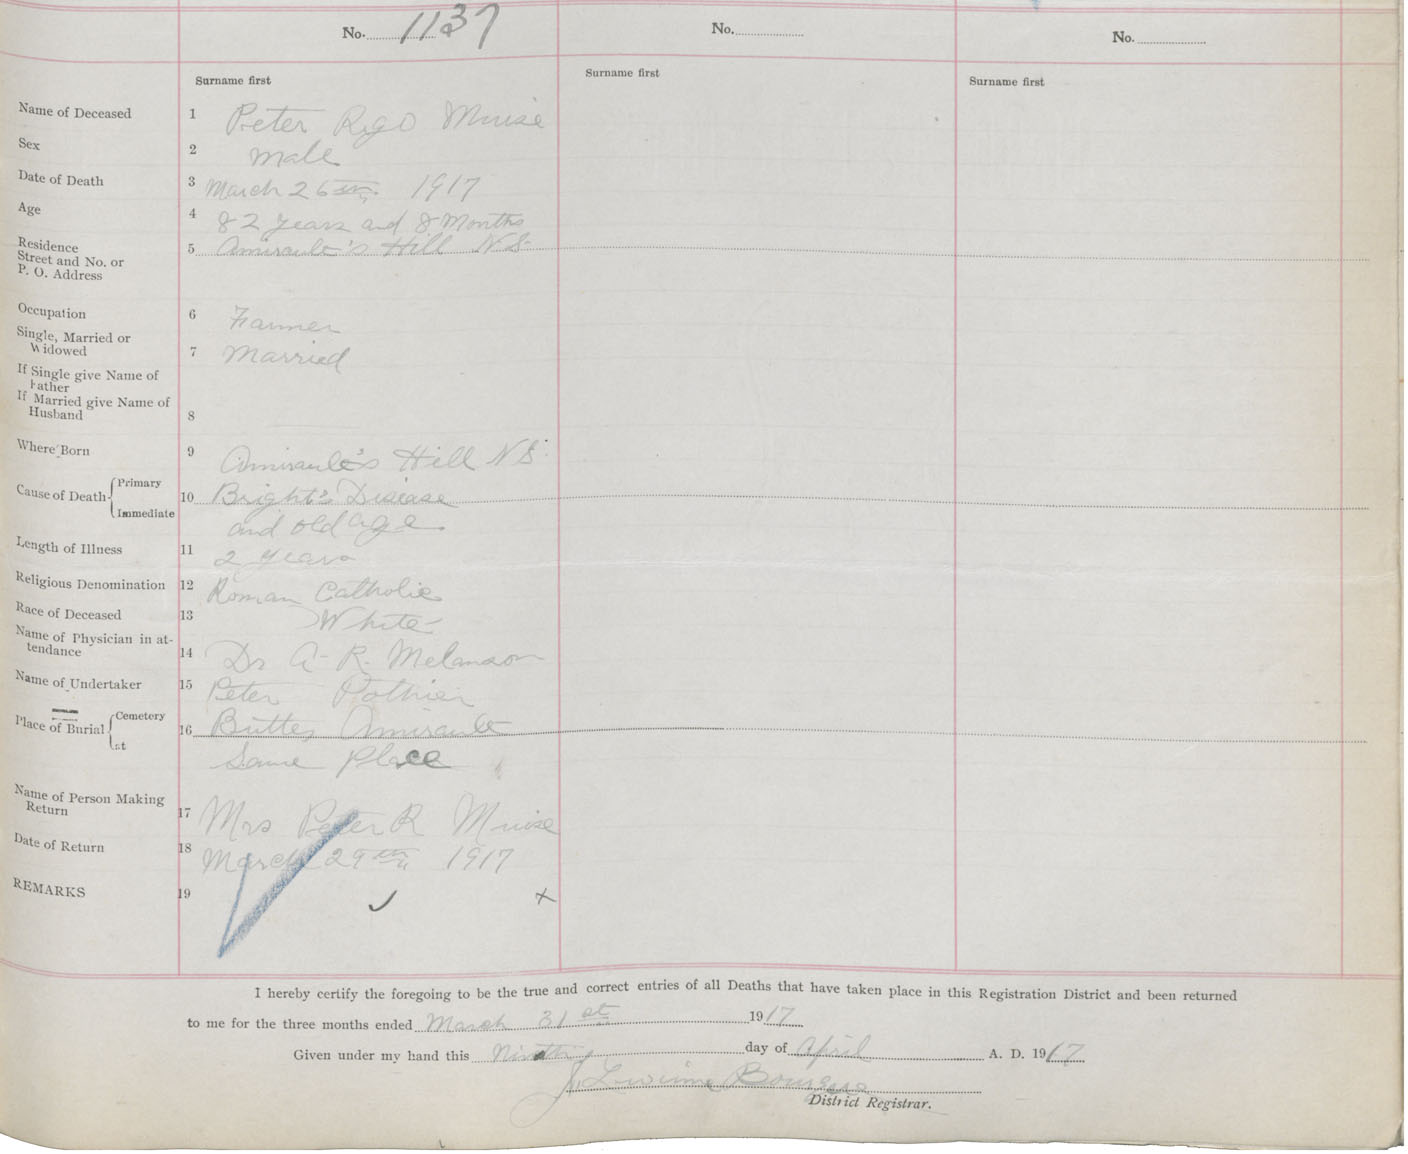 No. 1137 No. No.
Surname first Surname first Surname first
Name of Deceased 1 Peter Rego Muise
Sex 2 male
Date of Death 3 March 26th 1917
Age 4 82 years and 8 Months
Residence
Street and No. or
P. O. Address 5 Amirault's Hill N S.
Occupation 6 Farmer
Single, Married or
Widowed 7 Married
If Single give Name of
Father
If Married give Name of
Husband 8
Where Born 9 Amirault's Hill N S.
Cause of Death Primary
10 Bright's Disease
Immediate and old age
Length of Illness 11 2 years
Religious Denomination 12 Roman Catholic
Race of Deceased 13 White
Name of Physician in at-
tendance 14 Dr A. R. Melanson
Name of Undertaker 15 Peter Pothier
Place of Burial Cemetery
16 Buttes Amirault
at Same place
Name of Person Making
Return 17 Mrs Peter R Muise
Date of Return 18 March 29th 1917
REMARKS 19
I hereby certify the foregoing to be the true and correct entries of all Deaths that have taken place in this Registration District and been returned
to me for the three months ended March 31st 1917
Given under my hand this Ninth day of April A. D. 1917
Bourque
District Registrar.